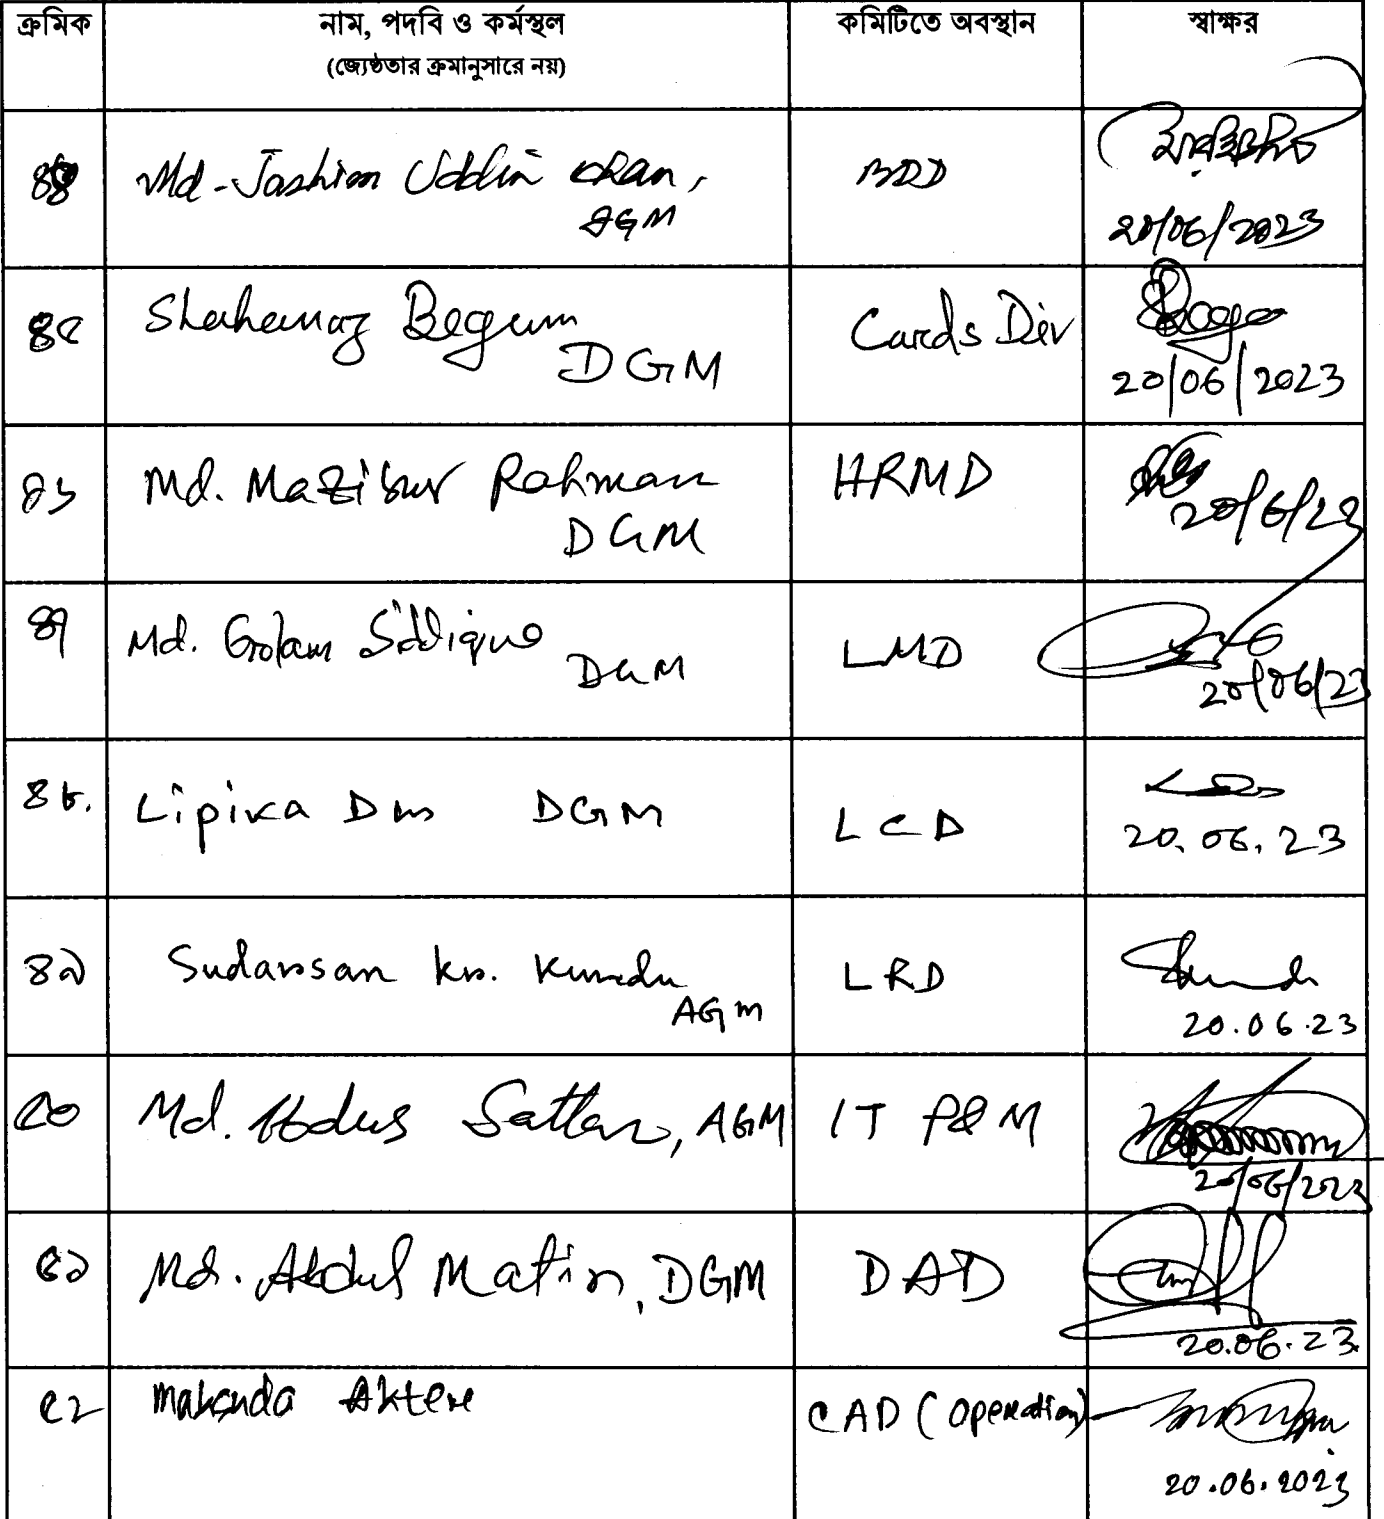 ক্রমিক
নাম, পদবি ও কর্মস্থল
(জ্যেষ্ঠতার ক্রমানুসারে নয়)
কমিটিতে অবস্থান
স্বাক্ষর
৪৪
Md. Jashim Uddin Khan,
AGM
BDD
20/06/2023
৪৫
Shahanaz Begum
DGM
Cards Div
20/06/2023
৪৬
Md. Mazibur Rahman
DGM
HRMD
20/6/23
৪৭
Md. Golam Siddique
DGM
LMD
20/06/23
৪৮.
Lipika Das DGM
LCD
20.06.23
৪৯
Sudarsan kr. Kundu
AGM
LRD
20.06.23
৫০
Md. Abdus Sattar, AGM
IT P&M
20/06/2023
৫১
Md. Abdul Matin, DGM
DAD
20.06.23
৫২
Maksuda Akter
CAD (Operation)
20.06.2023